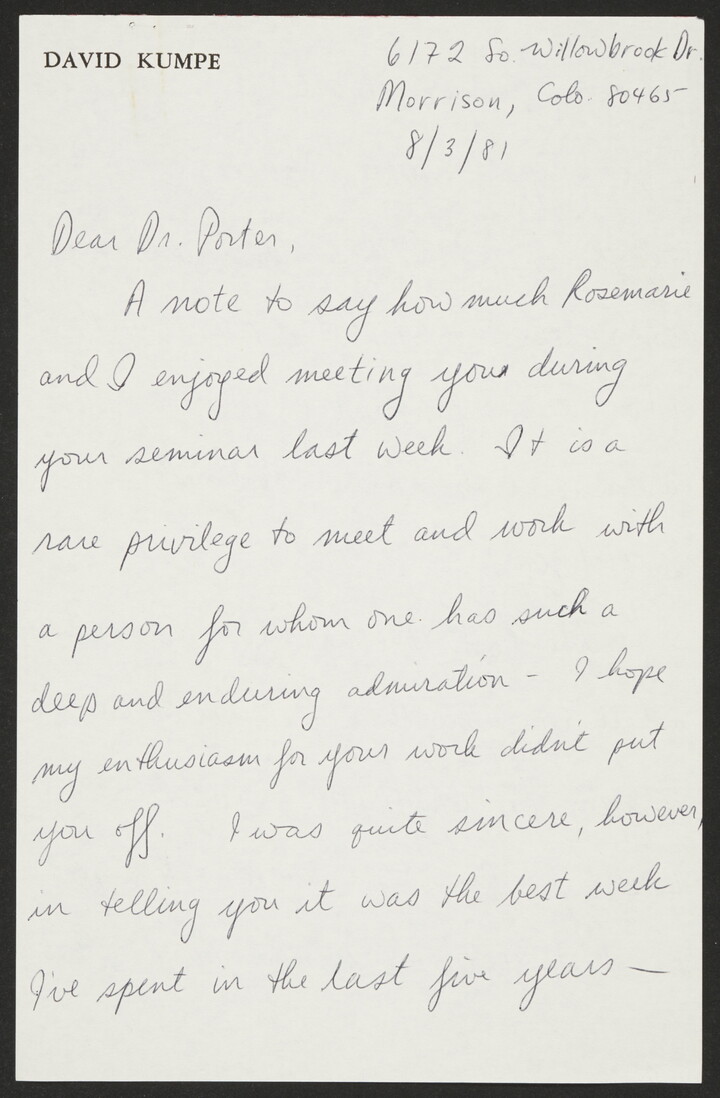 DAVID KUMPE
6172 So. Willowbrook Dr.
Morrison, Colo. 80465
8/3/81
Dear Dr. Porter,
A note to say how much Rosemarie
and I enjoyed meeting you during
your seminar last week. It is a
rare privilege to meet and work with
a person for whom one has such a
deep and enduring admiration - I hope
my enthusiasm for your work didn't put
you off. I was quite sincere, however,
in telling you it was the best week
I've spent in the last five years —